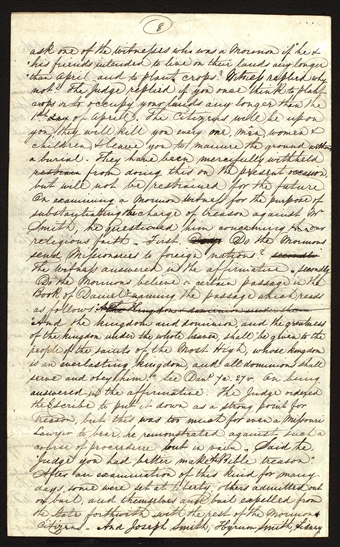 8
ask one of the witnesses who was a Mormon if he &
his friends intended to live on their lands any longer
than April and to plant crops? Witness replied why
not? The judge replied if you once think to plant
crops or to occupy your lands any longer than the
1st day of April; The Citizens will be upon
you, they will kill you every one, men, women &
children, & leave you to manure the ground without
a burial. They have been mercifully withheld
from doing this on the present occasion
but will not be restrained for the future
On examining a Mormon witness for the purpose of
substantiating the charge of treason against Mr
Smith, he questioned him concerning our
religeous faith. First, Do the Mormons
send Missionaries to foreign nations?
the witness answered in the affirmative. secondly
Do the Mormons believe a certain passage in the
Book of Daniel naming the passage which reads
as follows:
And the kingdom and dominion, and the greatness
of the kingdom under the whole heaven, shall be given to the
people of the saints of the Most High, whose kingdom
is an everlasting kingdom, and all dominions shall
serve and obey him? See Danl 7c. 27v. On being
answered in the affirmative. The Judge ordered
the Scribe to put it down as a strong point for
treason, but this was too much for even a Missouri
Lawyer to bear, he remonstrated against such a
course of procedure but in vain. Said he
Judge you had better make the Bible treason.
After an examination of this kind for many
days some were set at liberty, others admitted out
on bail, and themselves and bail expelled from
the State forthwith with the rest of the Mormon
Citizens. And Joseph Smith, Hyrum Smith,